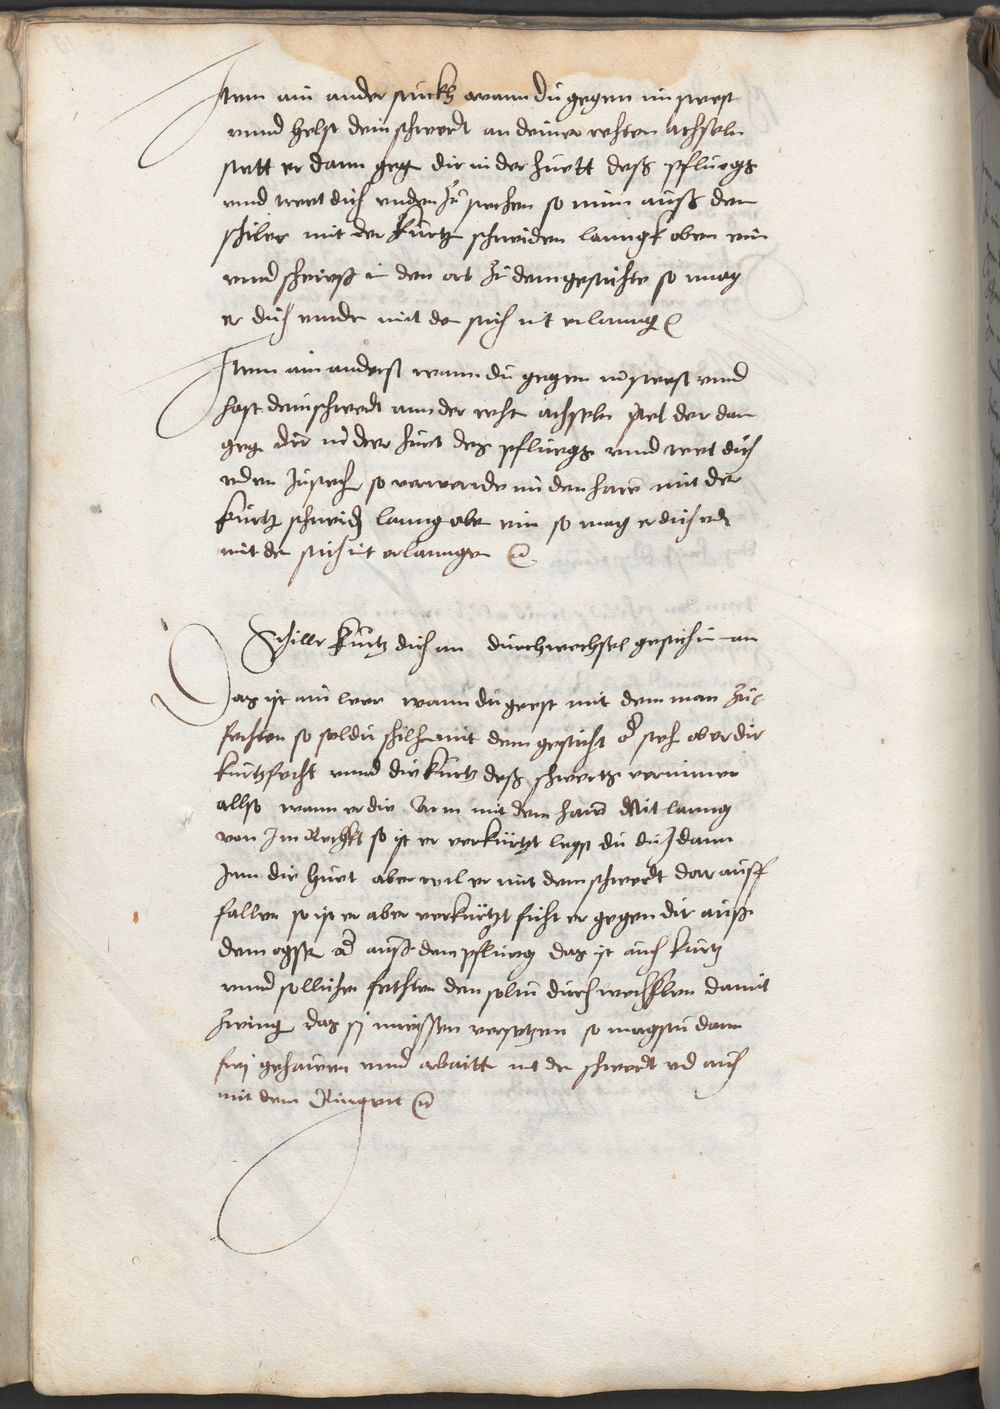 Item ain ander stuckh wann du gegen im stest
vnnd helst dein schwerdt an deiner rechten achseln
stett er dann geg dir in der huett deß pfluegs
vnnd wert dich vnden zu stechen so nim auß dem
schiler mit der kurtz schneiden lanngk oben ein
vnnd scheuß i den ort zu dem gesichte so mag
er dich vnnde mit de stich nit erlanng
Item ain anderst wann du gegen im stest vnnd
hast dein schwerdt ann der recht achseln stet der dan
geg dir in der huet des pfluegs vnnd wert dich
vden zu stech so verwende im den haw mit der
kurtz schneid lanng obe ein so mag er dich vd
mit de stich nit erlannge
Schille kürtz dich an durchwechsel gesich in an
Das ist ain leer wann du geest mit dem man zue
fechten so soldu schilhe mit dem gesicht od sech ob er dir
kürtz fecht vnnd die kürtz deß schwerts vernimen
allso wann er die Arm mit dem haw Nit lanng
von Im Reckht so ist er verkürtzt legst du dich dann
Inn die huet aber wil er mit dem schwerdt dar auff
fallen so ist er aber verkürtzt ficht er gegen dir auß
dem ogss od auß dem pflueg das ist auch kürtz
vnnd sollichen fechten den soltu durchwechslen damit
zwing das sj müessen versetzen so magstu dann
frej gehawen vnnd arbaitt mit de schwerdt vd auch
mit dem Ringen